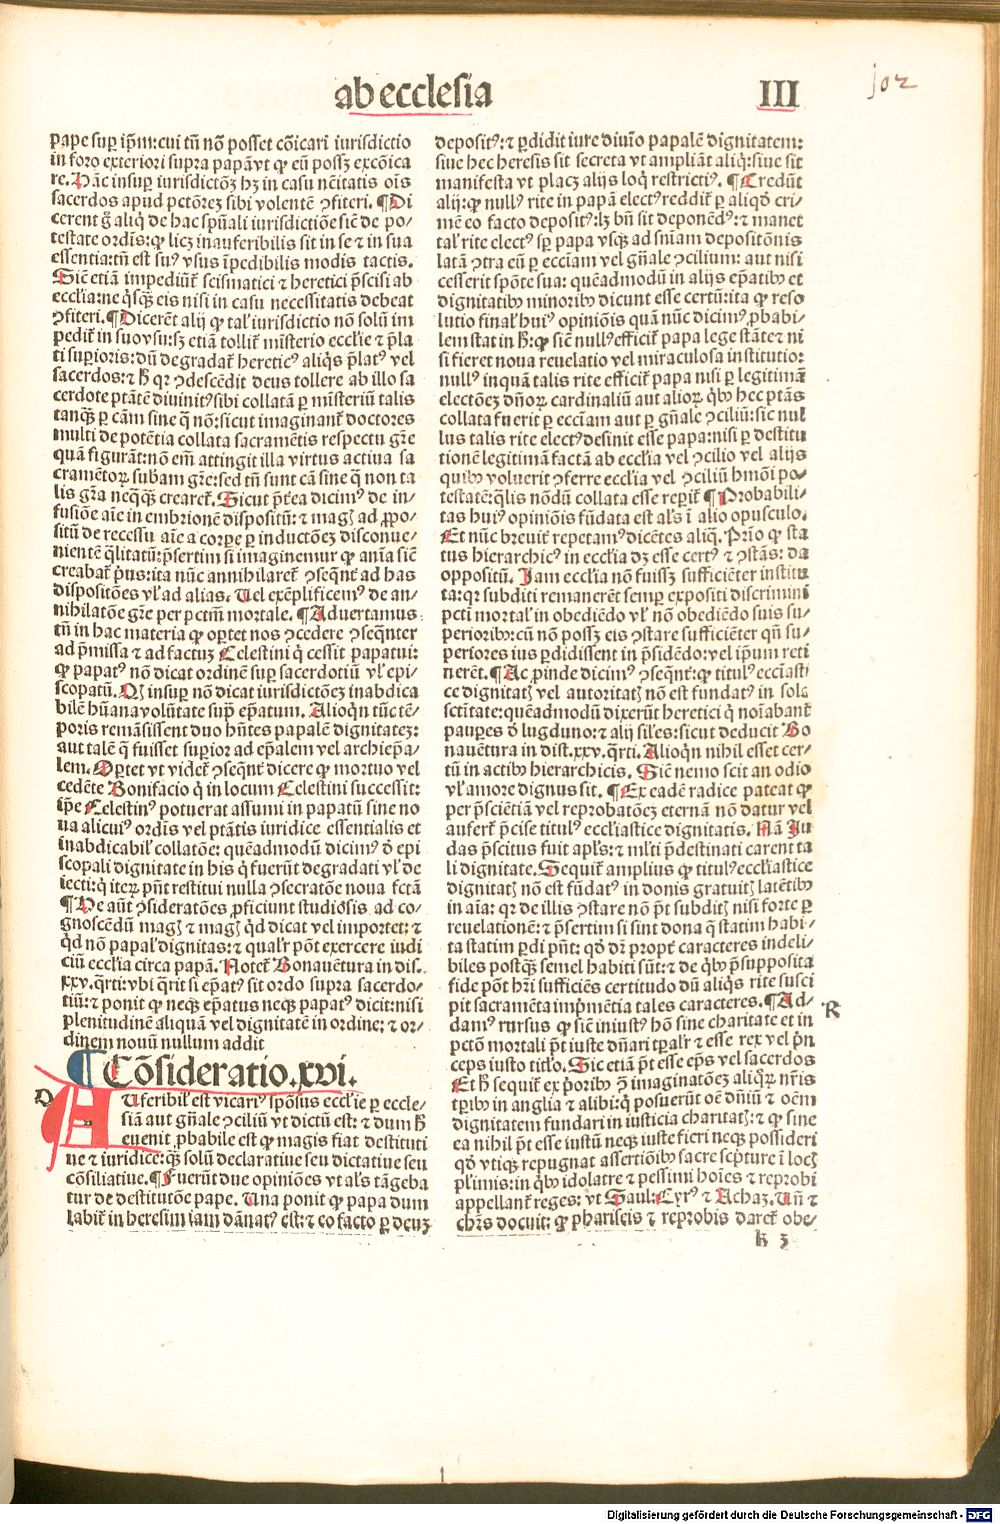 ab ecclesia
III
102
pape suꝑ ip̄m: cui tn̄ nō posset cōicari iurisdictio
in foro exteriori supra papā vt ꝙ eū possꝫ excōica
re. Hāc insuꝑ iurisdictōꝫ hꝫ in casu nc̄itatis oīs
sacerdos apud pctōreꝫ sibi volentē ꝯfiteri. ¶ Di
cerent ḡ aliq̄ de hac spūali iurisdictiōe sic̄ de po-
testate ordīs: ꝙ licꝫ inauferibilis sit in se ⁊ in sua
essentia: tn̄ est suꝰ vsus īpedibilis modis tactis.
Sic̄ etiā impediūt᷑ scismatici ⁊ heretici p̄scisi ab
eccl̄ia: ne q̄sꝗ̄ eis nisi in casu necessitatis debeat
ꝯfiteri. ¶ Dicerēt alij ꝙ tal̄ iurisdictio nō solū im
pedit᷑ in suo vsu: sꝫ etiā tollit᷑ mīsterio eccl̄ie ⁊ p̄la
ti suꝑioris: dū degradat᷑ hereticꝰ aliq̄s p̄latꝰ vel
sacerdos: ⁊ h̄ qꝛ ꝯdescēdit deus tollere ab illo sa
cerdote ptātē diuinitꝰ sibi collatā ꝑ mīsteriū talis
tanꝗ̄ ꝑ cām sine q̄ nō: sicut imaginant᷑ doctores
multi de potētia collata sacramētis respectu gr̄e
quā figurāt: nō em̄ attingit illa virtus actiua sa
cramētoꝝ subʼam gr̄e: sed tn̄ sunt cā sine q̄ non ta
lis gr̄a neqꝗ̄ crearet᷑. Sicut p̄t̄ea dicimꝰ de in-
fusiōe aīe in embrione dispositū: ⁊ magꝭ ad ꝓpo-
sitū de recessu aīe a corpe ꝑ inductōeꝫ disconue-
nientē q̄litatū: p̄sertim si imaginemur ꝙ anīa siē
creabat᷑ pʼus: ita nūc annihilaret᷑ ꝯseqn̄t᷑ ad has
dispositōes vl̄ ad alias. Uel exēplificemꝰ de an-
nihilatōe gr̄e per pctm̄ mortale. ¶ Aduertamus
tn̄ in hac materia ꝙ oꝑtet nos ꝯcedere ꝯseqn̄ter
ad p̄missa ⁊ ad factuꝫ Celestini q̄ cessit papatui:
ꝙ papatꝰ nō dicat ordinē suꝑ sacerdotiū vl̄ epi-
scopatū. Qꝫ insuꝑ nō dicat iurisdictōeꝫ inabdica
bilē hūana volūtate supꝰ epatum. Alioqn̄ tūc tē-
poris remāsissent duo hn̄tes papalē dignitateꝫ:
aut talē q̄ fuisset suꝑior ad epālem vel archiep̄a-
lem. Oꝑtet vt videt᷑ ꝯseqn̄t᷑ dicere ꝙ mortuo vel
cedēte Bonifacio q̄ in locum Celestini successit:
ip̄e Celestinꝰ potuerat assumi in papatū sine no
ua alicuiꝰ ordīs vel ptātis iuridice essentialis et
inabdicabil̄ collatōe: queādmodū dicimꝰ ō epi
scopali dignitate in his q̄ fuerūt degradati vl̄ de
iecti: q̄ iteꝝ pn̄t restitui nulla ꝯsecratōe noua fctā
¶ De aūt ꝯsideratōes ꝓficiunt studiosis ad co-
gnoscēdū magꝭ ⁊ magꝭ qd̄ dicat vel importet: ⁊
qd̄ nō papal̄ dignitas: ⁊ qualr̄ pōt exercere iudi
ciū eccl̄ia circa papā. Notet᷑ Bonauētura in dis.
xxv. q̄rti: vbi q̄rit si epatꝰ sit ordo supra sacerdo-
tiū: ⁊ ponit ꝙ neqꝫ ep̄atus neqꝫ papatꝰ dicit: nisi
plenitudinē aliquā vel dignitatē in ordine: ⁊ or-
dinem nouū nullum addit
¶ Cōsideratio. xvi.
D
AUferibil̄ est vicariꝰ spōsus eccl̄ie ꝑ eccle-
siā aut gn̄ale ꝯciliū vt dictū est: ⁊ dum h̄
euenit ꝓbabile est ꝙ magis fiat destituti
ue ⁊ iuridice: ꝗ̄ solū declaratiue seu dictatiue seu
cōsiliatiue. ¶ Fuerūt due opiniōes vt al̄s tāgeba
tur de destitutōe pape. Una ponit ꝙ papa dum
labit᷑ in heresim iam dānatꝰ est: ⁊ eo facto ꝑ deuꝫ
depositꝰ: ⁊ ꝑdidit iure diuīo papalē dignitatem:
siue hec heresis sit secreta vt ampliāt aliq̄: siue sit
manifesta vt placꝫ alijs loq̄ restrictiꝰ. ¶ Credūt
alij: ꝙ nullꝰ rite in papā electꝰ reddit᷑ ꝑ aliqd̄ cri-
mē eo facto depositꝰ: lꝫ bn̄ sit deponēdꝰ: ⁊ manet
tal̄ rite electꝰ sꝑ papa vsqꝫ ad sn̄iam depositōnis
latā ꝯtra eū ꝑ ecc̄iam vel gn̄ale ꝯcilium: aut nisi
cesserit spōte sua: queādmodū in alijs ep̄atibꝰ et
dignitatibꝰ minoribꝰ dicunt esse certū: ita ꝙ reso
lutio final̄ huiꝰ opiniōis quā nūc dicimꝰ ꝓbabi-
lem stat in h̄: ꝙ sic̄ nullꝰ efficit᷑ papa lege stāte ⁊ ni
si fieret noua reuelatio vel miraculosa institutio:
nullꝰ inquā talis rite efficit᷑ papa nisi ꝑ legitimā
electōeꝫ dn̄oꝝ cardinaliū aut alioꝝ q̄bꝰ hec ptās
collata fuerit ꝑ ecc̄iam aut ꝑ gn̄ale ꝯciliū: sic nul
lus talis rite electꝰ desinit esse papa: nisi ꝑ destitu
tionē legitimā factā ab eccl̄ia vel ꝯcilio vel alijs
quibꝰ voluerit ꝯferre eccl̄ia vel ꝯciliū hmōi po-
testatē: q̄lis nōdū collata esse reꝑit᷑ ¶ Probabili-
tas huiꝰ opiniōis fūdata est al̄s ī alio opusculo.
Et nūc breuit᷑ repetamꝰ dicētes aliq̄. Prīo ꝙ sta
tus hierarchicꝰ in eccl̄ia dꝫ esse certꝰ ⁊ ꝯstās: da
oppositū. Iam eccl̄ia nō fuissꝫ sufficiēter institu
ta: qꝛ subditi remanerēt semꝑ expositi discrimini
pcti mortal̄ in obediēdo vl̄ nō obediēdo suis su-
perioribꝰ: cū nō possꝫ eis ꝯstare sufficiēter qn̄ su-
periores ius ꝑdidissent in p̄sidēdo: vel ip̄um reti
nerēt. ¶ Ac ꝓinde dicimꝰ ꝯseqn̄t᷑: ꝙ titulꝰ ecc̄iasti
ce dignitatꝭ vel autoritatꝭ nō est fundatꝰ in sola
sctītate: queādmodū dixerūt heretici q̄ noīabant᷑
pauꝑes ō lugduno: ⁊ alij sil̄es: sicut deducit Bo
nauētura in dist. xxv. q̄rti. Alioqn̄ nihil esset cer-
tū in actibꝰ hierarchicis. Sic̄ nemo scit an odio
vl̄ amore dignus sit. ¶ Ex eadē radice pateat ꝙ
per p̄sciētiā vel reprobatōeꝫ eternā nō datur vel
aufert᷑ p̄cise titulꝰ eccl̄iastice dignitatis. Nā Iu
das p̄scitus fuit apl̄s: ⁊ ml̄ti p̄destinati carent ta
li dignitate. Sequit᷑ amplius ꝙ titulꝰ eccl̄iastice
dignitatꝭ nō est fūdatꝰ in donis gratuitꝭ latētibꝰ
in aīa: qꝛ de illis ꝯstare nō pt̄ subditꝭ nisi forte ꝑ
reuelationē: ⁊ p̄sertim si sint dona q̄ statim habi-
ta statim ꝑdi pn̄t: qd̄ dr̄ propt᷑ caracteres indeli-
biles postꝗ̄ semel habiti sūt: ⁊ de q̄bꝰ p̄supposita
fide pōt hr̄i sufficiēs certitudo dū aliq̄s rite susci
pit sacramēta imp̄mētia tales caracteres. ¶ Ad-
R
damꝰ rursus ꝙ sic̄ iniustꝰ hō sine charitate et in
pctō mortali pt̄ iuste dn̄ari tꝑalr̄ ⁊ esse rex vel pn̄
ceps iusto titl̄o. Sic etiā pt̄ esse ep̄s vel sacerdos
Et h̄ sequit᷑ ex p̄oribꝰ ꝯ̄ imaginatōeꝫ aliqꝝ nr̄is
tꝑibꝰ in anglia ⁊ alibi: q̄ posuerūt oē dn̄iū ⁊ oēm
dignitatem fundari in iusticia charitatꝭ: ⁊ ꝙ sine
ea nihil pt̄ esse iustū neqꝫ iuste fieri neqꝫ possideri
qd̄ vtiqꝫ repugnat assertiōibꝰ sacre scpture ī locꝭ
pl̄imis: in q̄bꝰ idolatre ⁊ pessimi hoīes ⁊ reprobi
appellant᷑ reges: vt Saul: Cyrꝰ ⁊ Achaz. Un̄ ⁊
chr̄s docuit: ꝙ phariseis ⁊ reprobis daret᷑ obe-
k 3
Digitalisierung gefördert durch die Deutsche Forschungsgemeinschaft - DFG